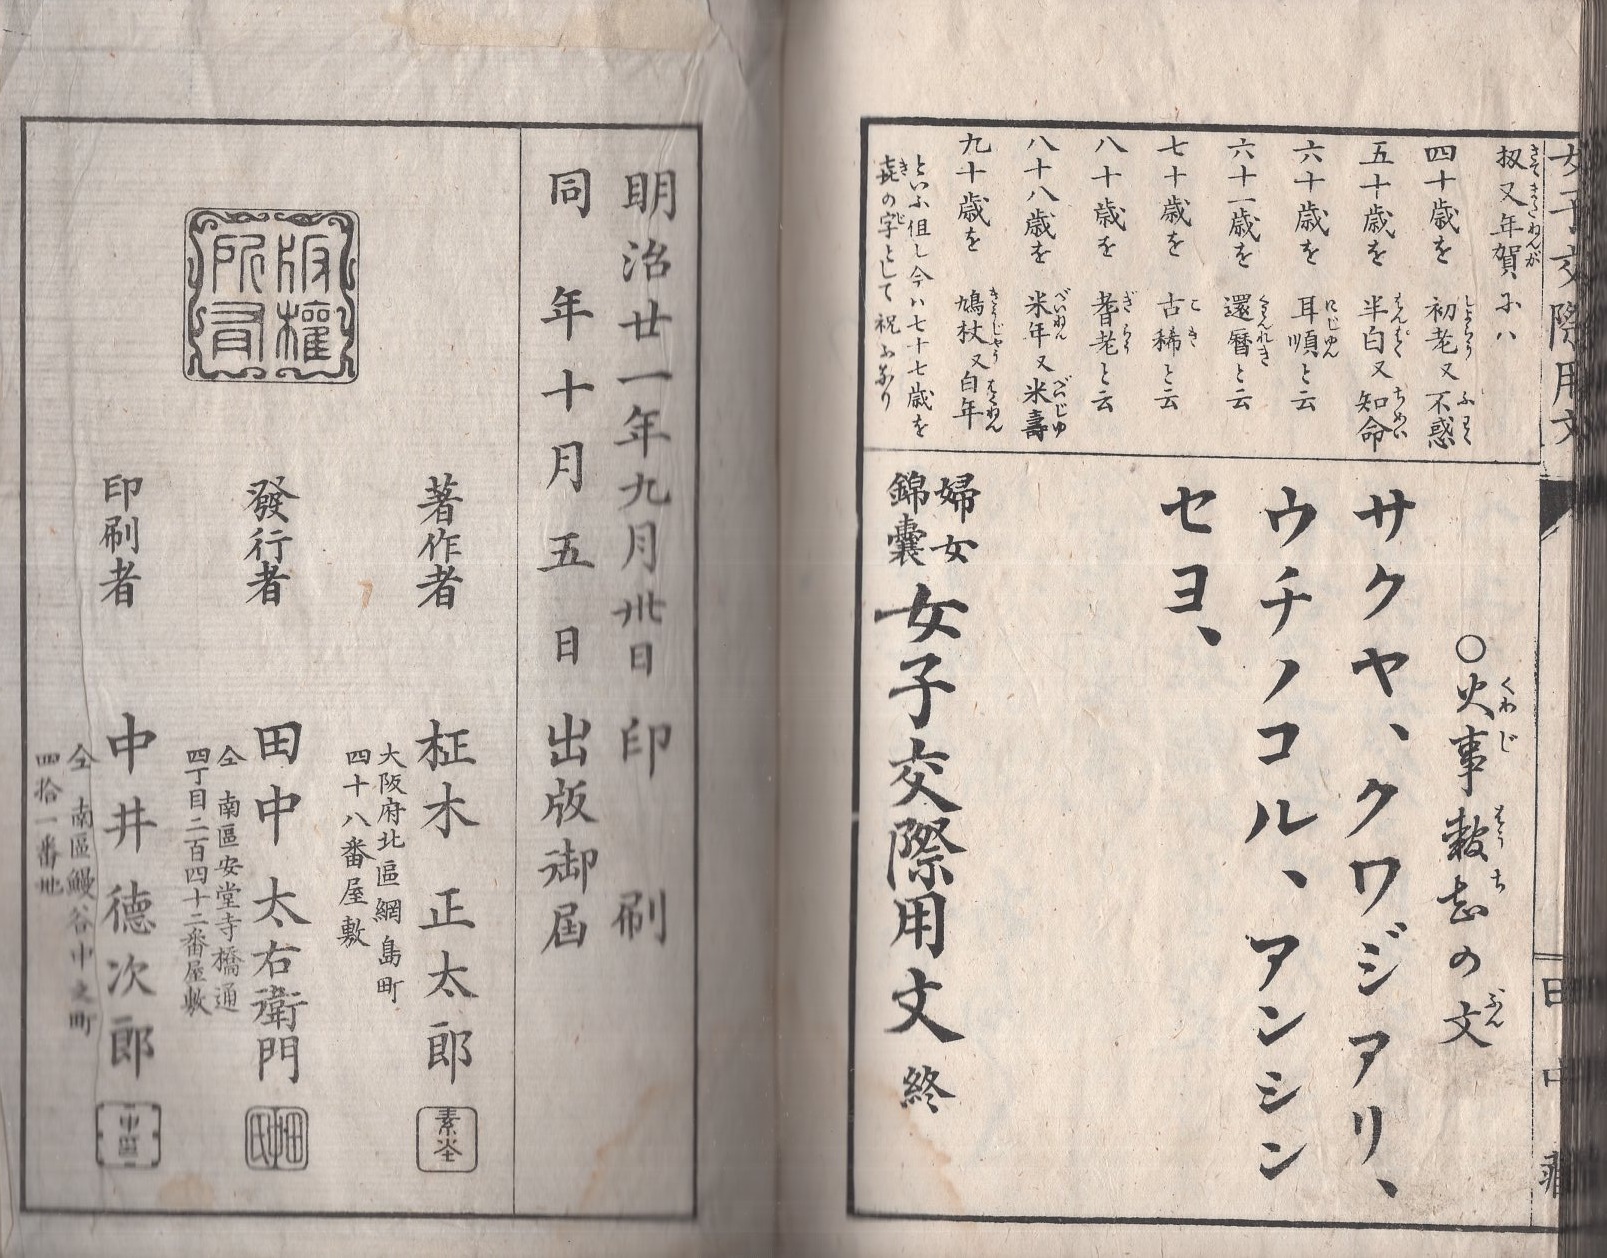 女子交際用文
扨又年賀にハ
四十歳を 初老又不惑
五十歳を 半白又知命
六十歳を 耳順と云
六十一歳を 還暦と云
七十歳を 古稀と云
八十歳を 耆老と云
八十八歳を 米年又米壽
九十歳を 鳩杖又白年
といふ但し今ハ七十七歳を
㐂の字として祝ふなり
○火事報知の文
サクヤ、クワジアリ、
ウチノコル、アンシン
セヨ、
婦女
錦囊
女子交際用文 終
田中
明治廿一年九月卅日 印刷
同年十月五日 出版御届
版權
所有
著作者 柾木正太郎
大阪府北區網島町
四十八番屋敷
素岙
發行者 田中太右衛門
仝 南區安堂寺橋通
四丁目二百四十二番屋敷
印刷者 中井德次郎
仝 南區鰻谷中之町
四拾一番地